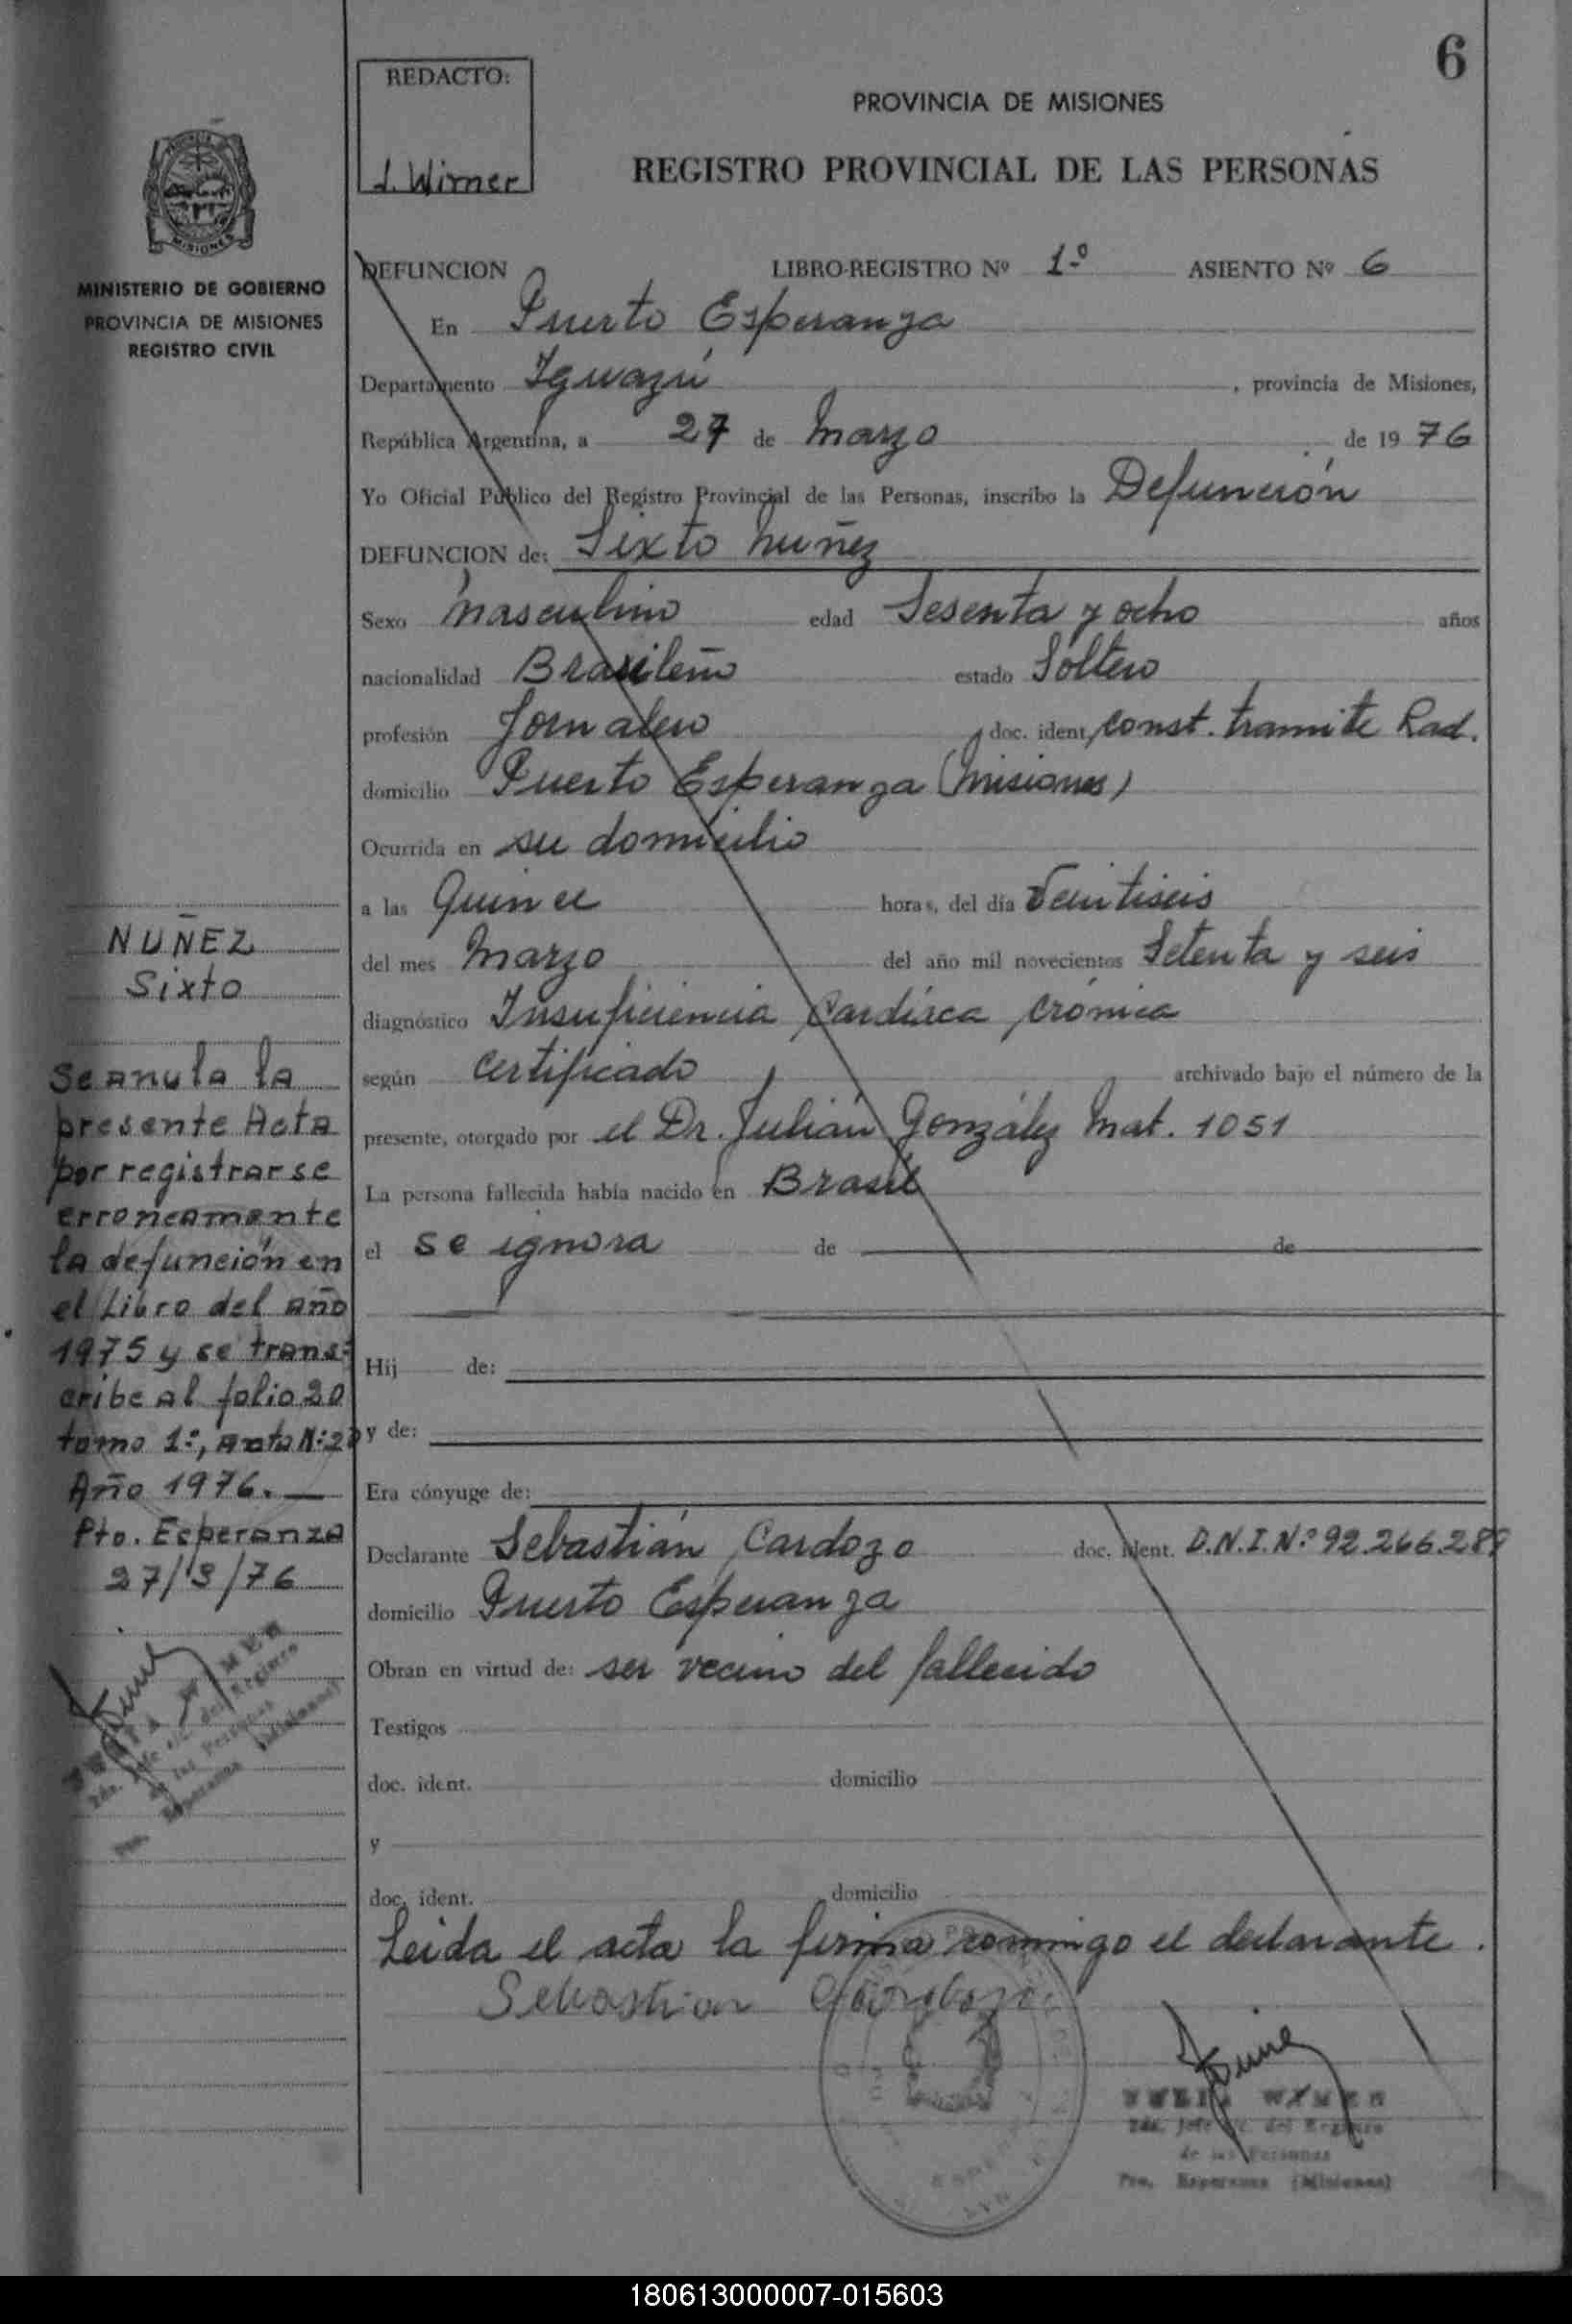 6
REDACTO:
L. Wirner
PROVINCIA DE MISIONES
REGISTRO PROVINCIAL DE LAS PERSONAS
MISIONES
MINISTERIO DE GOBIERNO
PROVINCIA DE MISIONES
REGISTRO CIVIL
DEFUNCION LIBRO-REGISTRO Nº 1º ASIENTO Nº 6
En Puerto Esperanza
Departamento Iguazú, provincia de Misiones,
República Argentina, a 27 de Marzo de 1976
Yo Oficial Público del Registro Provincial de las Personas, inscribo la Defunción
DEFUNCION de: Sixto Nuñez
Sexo masculino edad Sesenta y ocho años
nacionalidad Brasileño estado Soltero
profesión Jornalero doc. ident. const. tramite Rad.
domicilio Puerto Esperanza (Misiones)
Ocurrida en su domicilio
a las Quince horas, del día Veintiseis
del mes Marzo del año mil novecientos Setenta y seis
diagnóstico Insuficiencia Cardíaca Crónica
según Certificado archivado bajo el número de la
presente, otorgado por el Dr. Julián González Mat. 1051
La persona fallecida había nacido en Brasil
el se ignora de de
Hij de:
y de:
Era cónyuge de:
Declarante Sebastián Cardozo doc. ident. D.N.I.Nº 92.266.289
domicilio Puerto Esperanza
Obran en virtud de: ser vecino del fallecido
Testigos
doc. ident. domicilio
y
doc. ident. domicilio
Leida el acta la firma conmigo el declarante.
Sebastian Cardozo
WIMER
2da. Jefe del Registro
de las Personas
Pto. Esperanza (Misiones)
NUÑEZ
Sixto
Se anula la
presente Acta
por registrarse
erroneamente
la defunción en
el Libro del año
1975 y se trans-
cribe al folio 20
tomo 1º, Acta Nº 20
Año 1976.—
Pto. Esperanza
27/3/76
WIMER
2da. Jefe del Registro
de las Personas
Pto. Esperanza (Misiones)
180613000007-015603